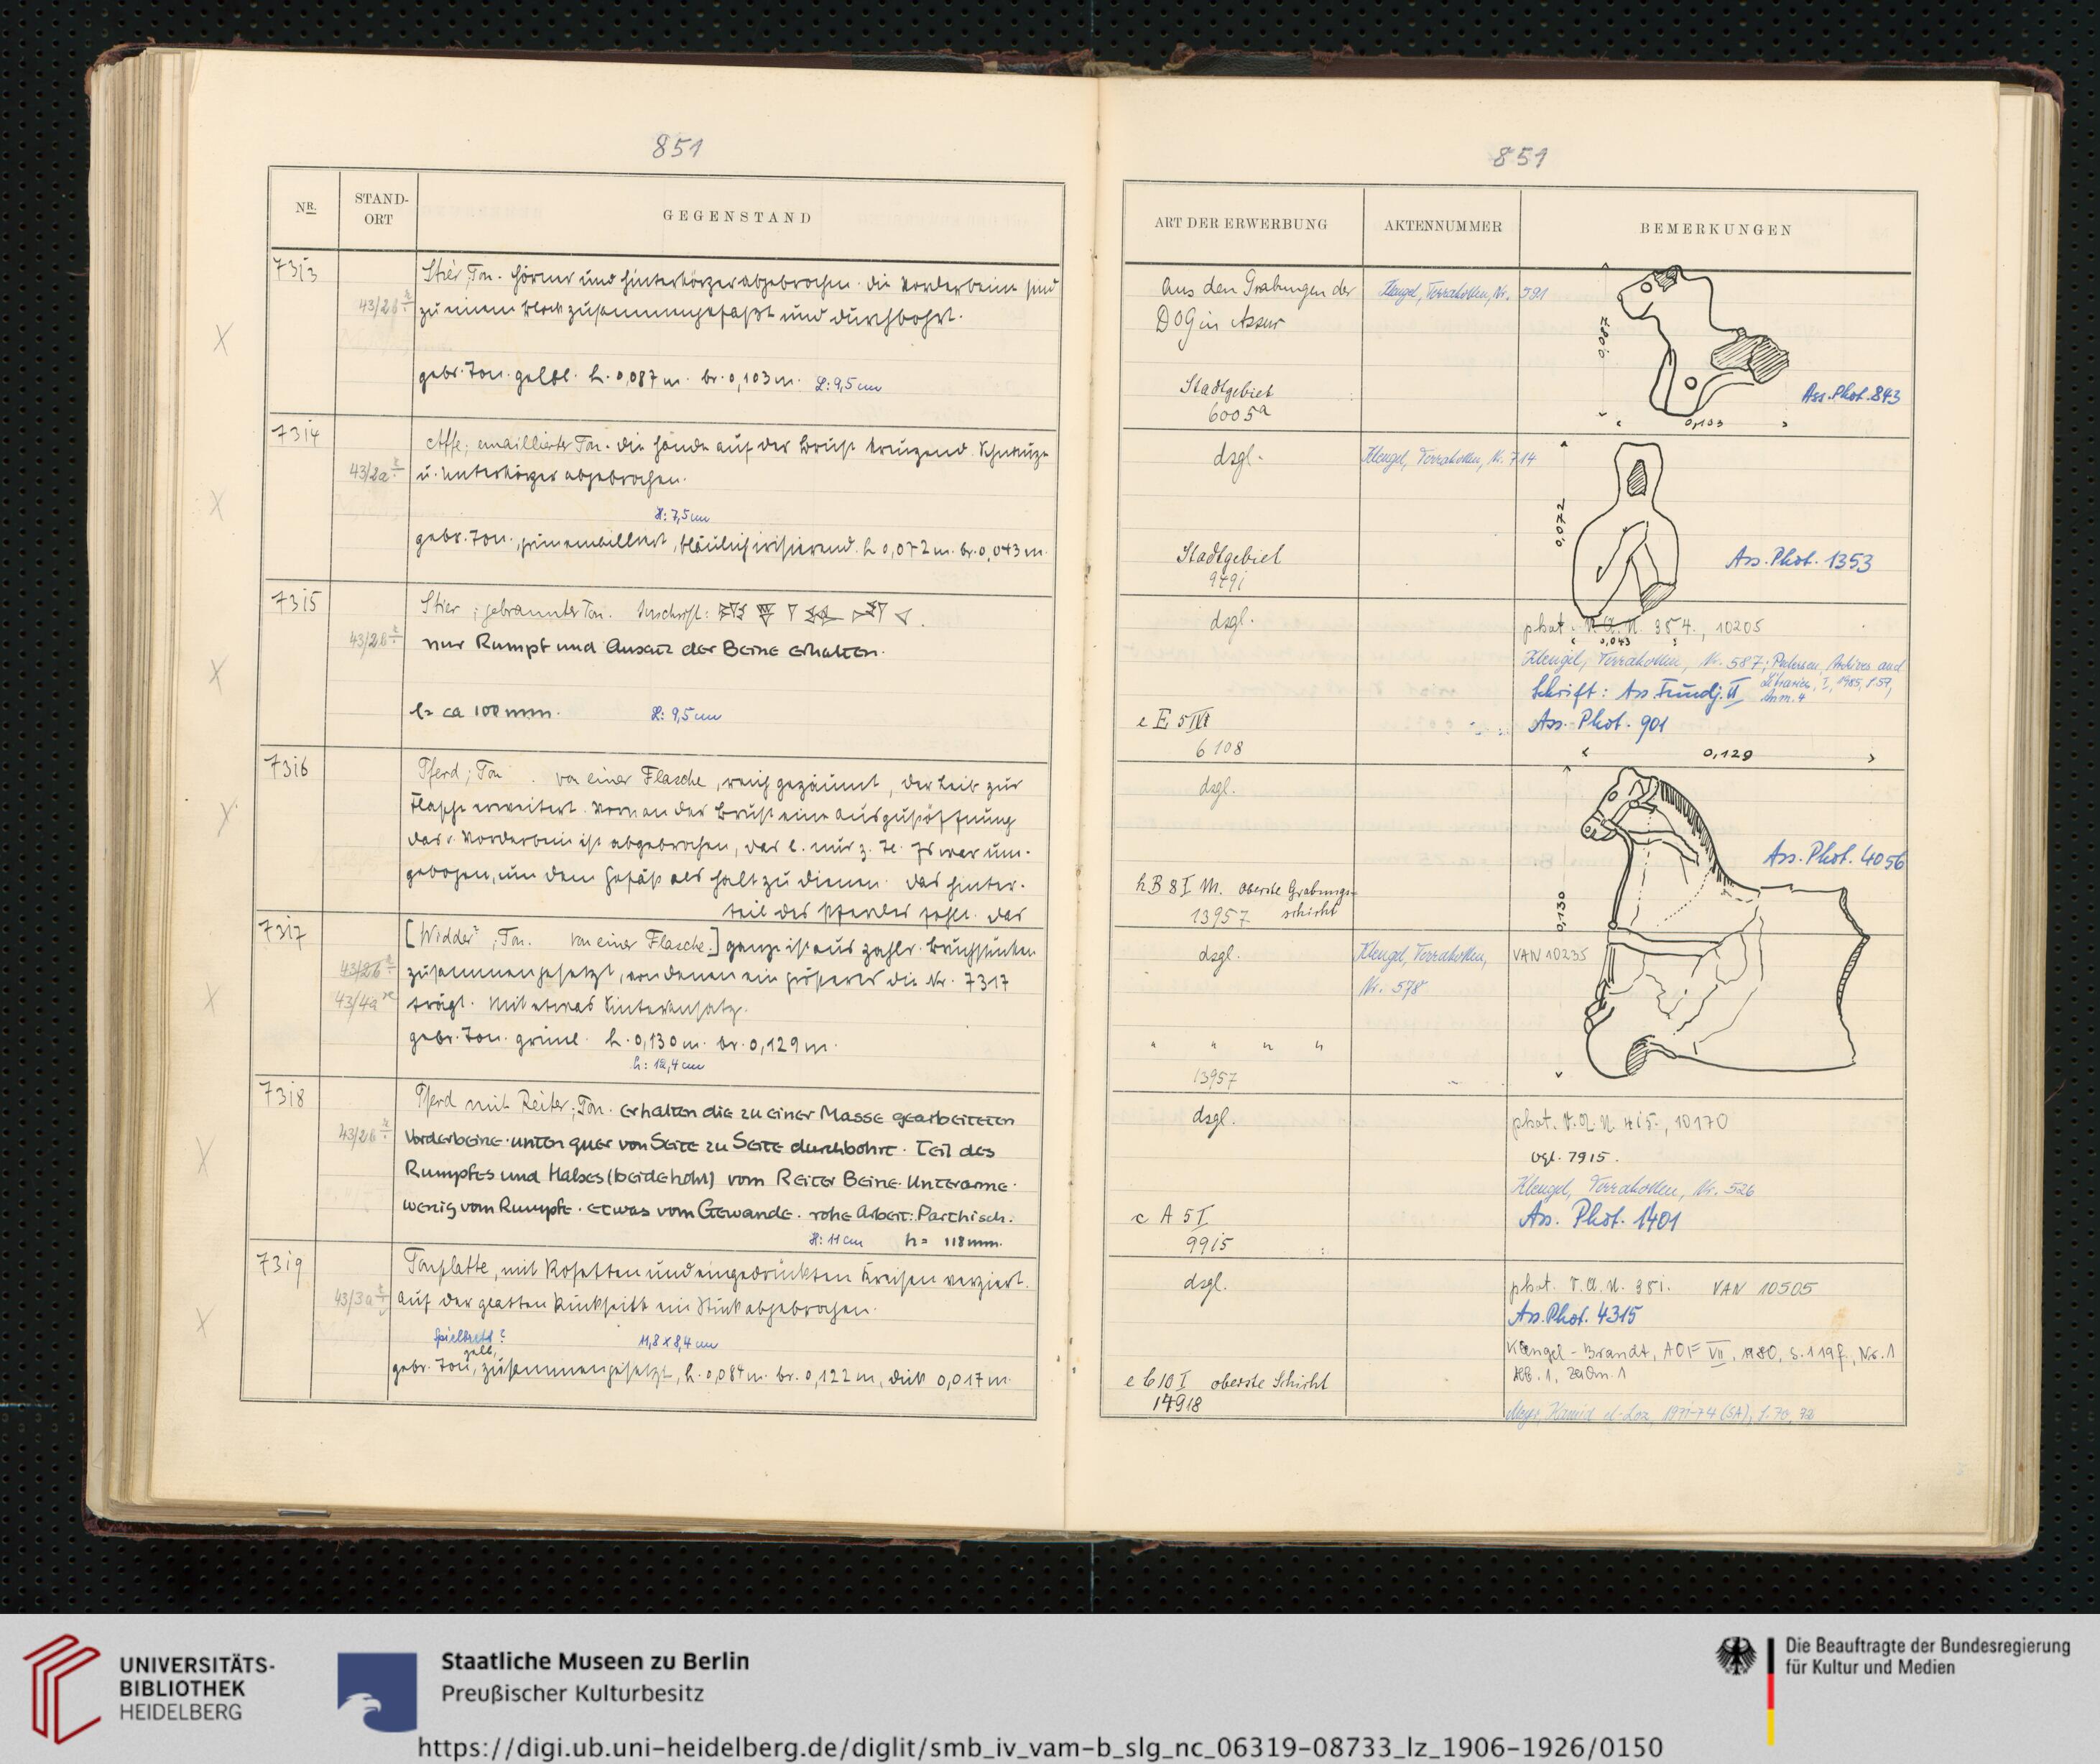 851
NR.
STAND-
ORT
GEGENSTAND
7313
43/2b
Stier, Ton. Hörner und Hinterkörper abgebrochen. Die Vorderbeine sind
zu einem Block zusammengefaßt und durchbohrt.
gebr. Ton. gelbl. h. 0,087 m. br. 0,103 m. L: 9,5 cm
7314
43/2a
Affe; emaillierter Ton. Die Hände auf der Brust kreuzend. Schnauze
u. Unterkörper abgebrochen.
H: 7,5 cm
gebr. Ton., grün emailliert, bläulich irisierend. h 0,072 m. br. 0,043 m.
7315
43/2b
Stier; gebrannter Ton. Inschrift:
nur Rumpf und Ansatz der Beine erhalten.
l= ca 100 mm. L: 9,5 cm
7316
Pferd; Ton. von einer Flasche, reich gezäumt, der Leib zur
Flasche erweitert. Vorn an der Brust eine Ausgußöffnung
das r. Vorderbein ist abgebrochen, das l. nur z. Te. Es war um-
gebogen, um dem Gefäß als Halt zu dienen. Das Hinter-
teil des Pferdes fehlt. Das
7317
43/2b
43/4a
[Widder, Ton. Von einer Flasche.] ganze ist aus zahlr. Bruchstücken
zusammengesetzt, von denen ein größeres die Nr. 7317
trägt. Mit etwas Sinteransatz.
gebr. Ton. grünl. h. 0,130 m. br. 0,129 m.
h: 12,4 cm
7318
43/2b
Pferd mit Reiter; Ton. Erhalten die zu einer Masse gearbeiteten
Vorderbeine. unten quer von Seite zu Seite durchbohrt. Teil des
Rumpfes und Halses (beide hohl) vom Reiter Beine. Unterarme.
wenig vom Rumpfe. etwas vom Gewande. rohe Arbeit: Parthisch.
H: 11 cm h = 118 mm.
7319
43/3a
Tonplatte, mit Rosetten und eingedrückten Kreisen verziert.
Auf der glatten Rückseite ein Stück abgebrochen.
Spielbrett? 11,8 x 8,4 cm
gelb,
gebr. Ton, zusammengesetzt, h. 0,084 m. br. 0,122 m, dick 0,017 m.
851
ART DER ERWERBUNG
AKTENNUMMER
BEMERKUNGEN
Aus den Grabungen der
DOG in Assur
Klengel, Terrakotten, Nr. 591
Stadtgebiet
6005a
0,087
0,103
Ass. Phot. 843
dsgl.
Klengel, Terrakotten, Nr. 714
Stadtgebiet
979i
0,072
0,043
Ass. Phot. 1353
dsgl.
phot. V.A.N. 954., 10205
Klengel, Terrakotten, Nr. 587; Pedersen, Archives and
Libraries, I, 1985, S. 57,
Anm. 4
Schrift: Ass. Fundj. II
Ass. Phot. 901
e E 5 IV
6108
0,129
dsgl.
Ass. Phot. 4056
0,130
h B 8 I M. oberste Grabungs-
13957 schicht
dsgl.
Klengel, Terrakotten,
Nr. 578
VAN 10235
" " " "
13957
dsgl.
phot. V.A.N. 415., 10170
vgl. 7915.
Klengel, Terrakotten, Nr. 526
Ass. Phot. 1401
c A 5 I
9915
dsgl.
phot. V.A.N. 951. VAN 10505
Ass. Phot. 4315
Klengel-Brandt, AOF VII, 1980, S. 119f., Nr. 1
Abb. 1, Zeichn. 1
e b 10 I oberste Schicht
14918
Meyer, Kamid el-Loz, 1971-74 (SA), S. 70, 92
UNIVERSITÄTS-
BIBLIOTHEK
HEIDELBERG
Staatliche Museen zu Berlin
Preußischer Kulturbesitz
Die Beauftragte der Bundesregierung
für Kultur und Medien
https://digi.ub.uni-heidelberg.de/diglit/smb_iv_vam-b_slg_nc_06319-08733_lz_1906-1926/0150